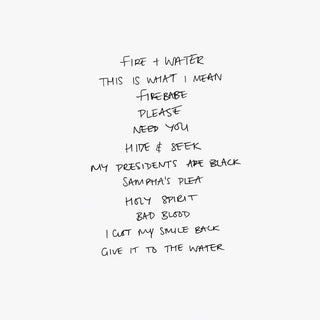 FIRE + WATER
THIS IS WHAT I MEAN
FIREBABE
PLEASE
NEED YOU
HIDE & SEEK
MY PRESIDENTS ARE BLACK
SAMPHA'S PLEA
HOLY SPIRIT
BAD BLOOD
I GOT MY SMILE BACK
GIVE IT TO THE WATER